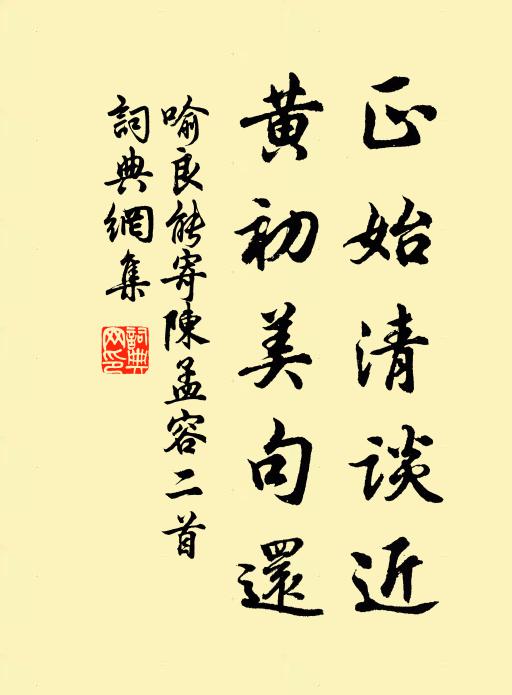 正始清谈近
黄初美句還
喻良能寄陳孟容二首
詞典網集
詞典網印